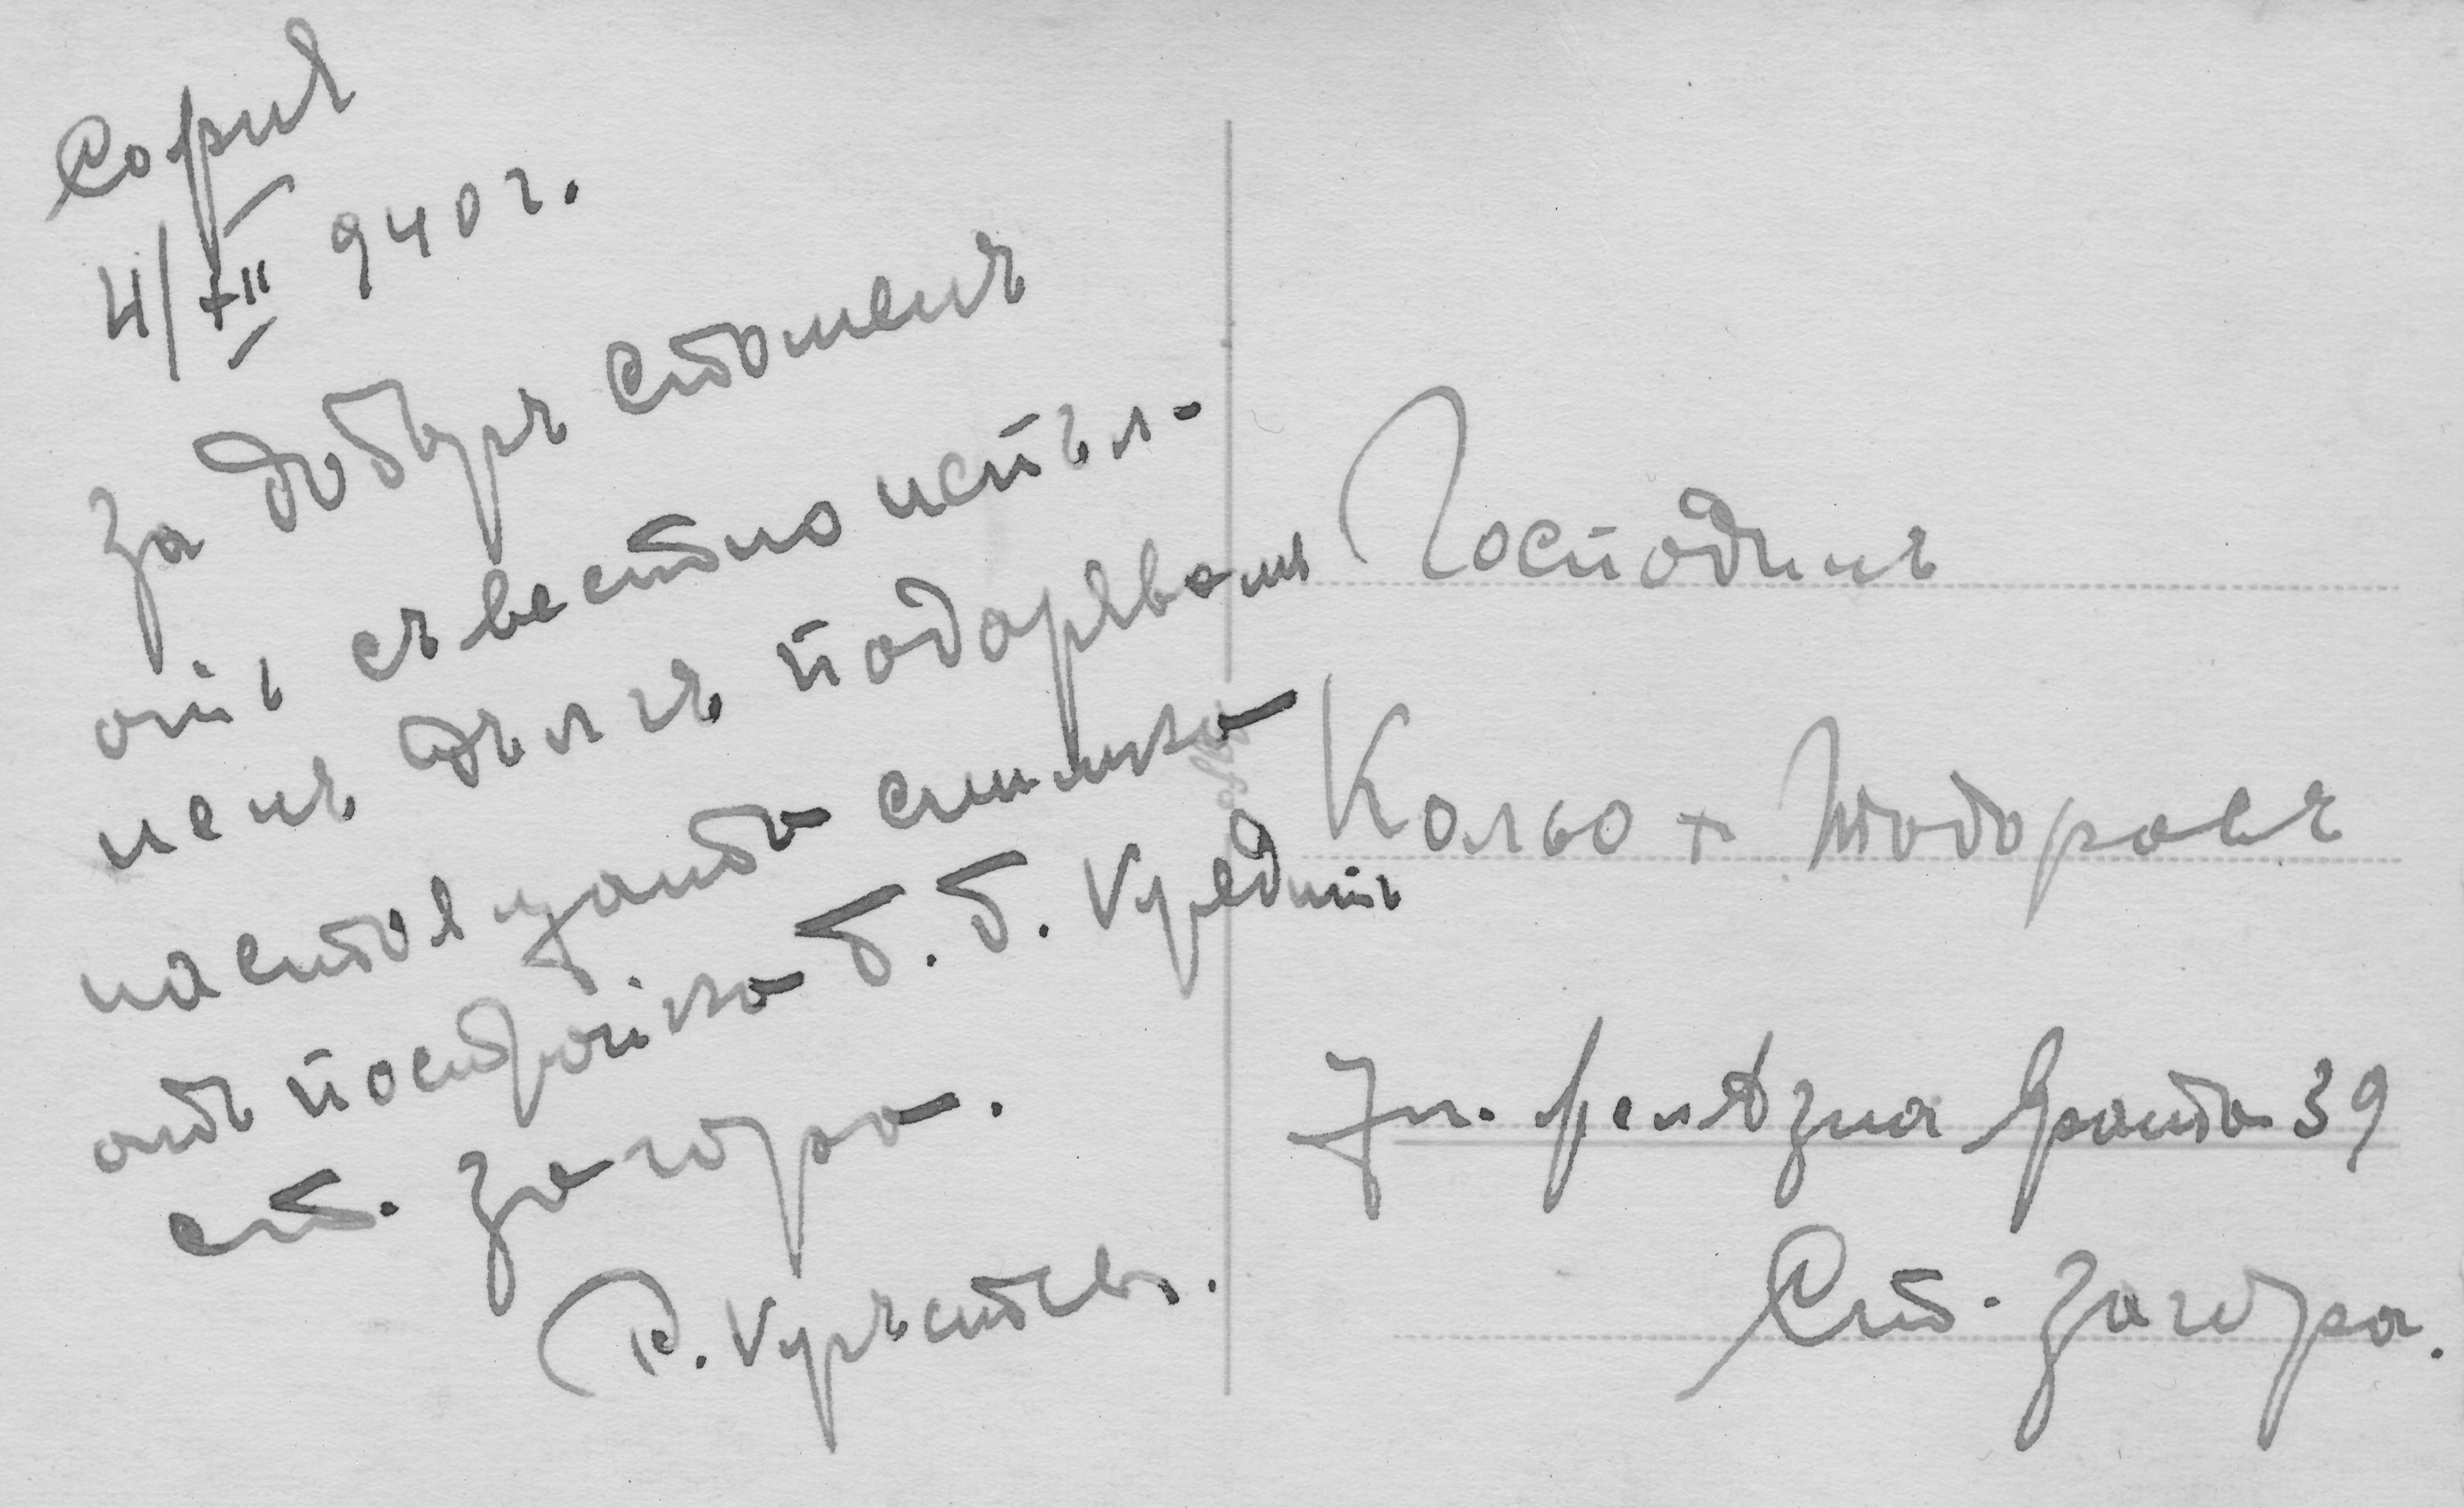 София
4/XII 940 г.
За добъръ споменъ
отъ съвестно испъл-
ненъ дългъ подарявамъ
настоящата снимка
отъ постройка Б. Б. Кредитъ
Ст. Загора.
Кръстевъ.
Господинъ
Кольо х Тодоровъ
Ул. Железна врата 39
Ст. Загора.